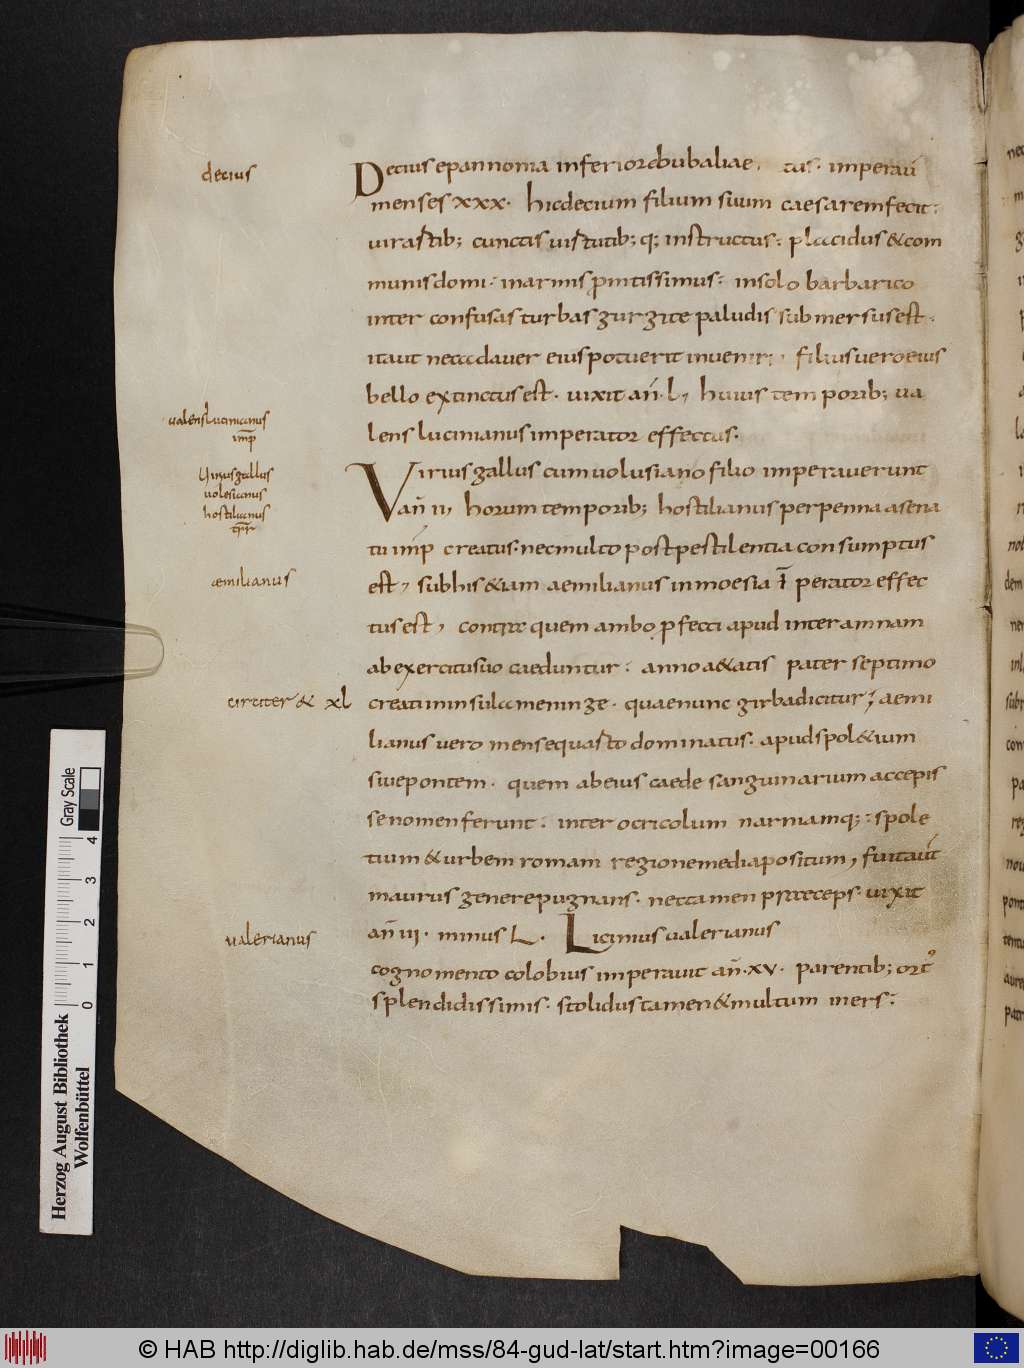 decius
Decius e pannonia inferiore bubaliae tus · imperau̅
menses xxx · hic decium filium suum caesarem fecit :
uir artib; cunctis uirtutib; q; instructus : placidus & com
munis domi · in armis p̄mtissimus : in solo barbarico
inter confusas turbas gurgite paludis submersus est ·
ita ut nec cadauer eius potuerit inueniri filius uero eius
bello extinctus est · uixit an̄ · l, huius temporib; ua
lens lucinianus imperator effectus ·
valens lucinianus
imp̄
Virius gallus cum uolusiano filio imperauerunt
Uirius gallus
uolesianus
hostilianus
an̄ ii, horum temporib; hostilianus perpenna a sena
tu imp̄ creatus · nec multo post pestilentia consumptus
æmilianus
est, sub his & iam aemilianus in moesia īperator effec
tus est, contra quem ambo pfecti apud interamnam
ab exercitu suo caeduntur : anno a&atis pater septimo
circiter & xl
creati in insula meninge · quae nunc girba dicitur ; aemi
lianus uero mense quarto dominatus · apud spol&ium
siue pontem · quem ab eius caede sanguinarium accepis
se nomen ferunt : inter ocricolum narniamq; : spole
tium & urbem romam regione media positum, fuit aut̄
maurus genere pugnans · nec tamen praeceps · uixit
valerianus
an̄ iii · minus L · Licinius ualerianus
cognomento colobius imperauit an̄ · xv · parentib; ort᾿
splendidissimis · stolidus tamen & multum iners :
Gray Scale
0 1 2 3 4
Herzog August Bibliothek
Wolfenbüttel
© HAB http://diglib.hab.de/mss/84-gud-lat/start.htm?image=00166